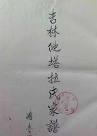 吉林他塔拉氏家譜